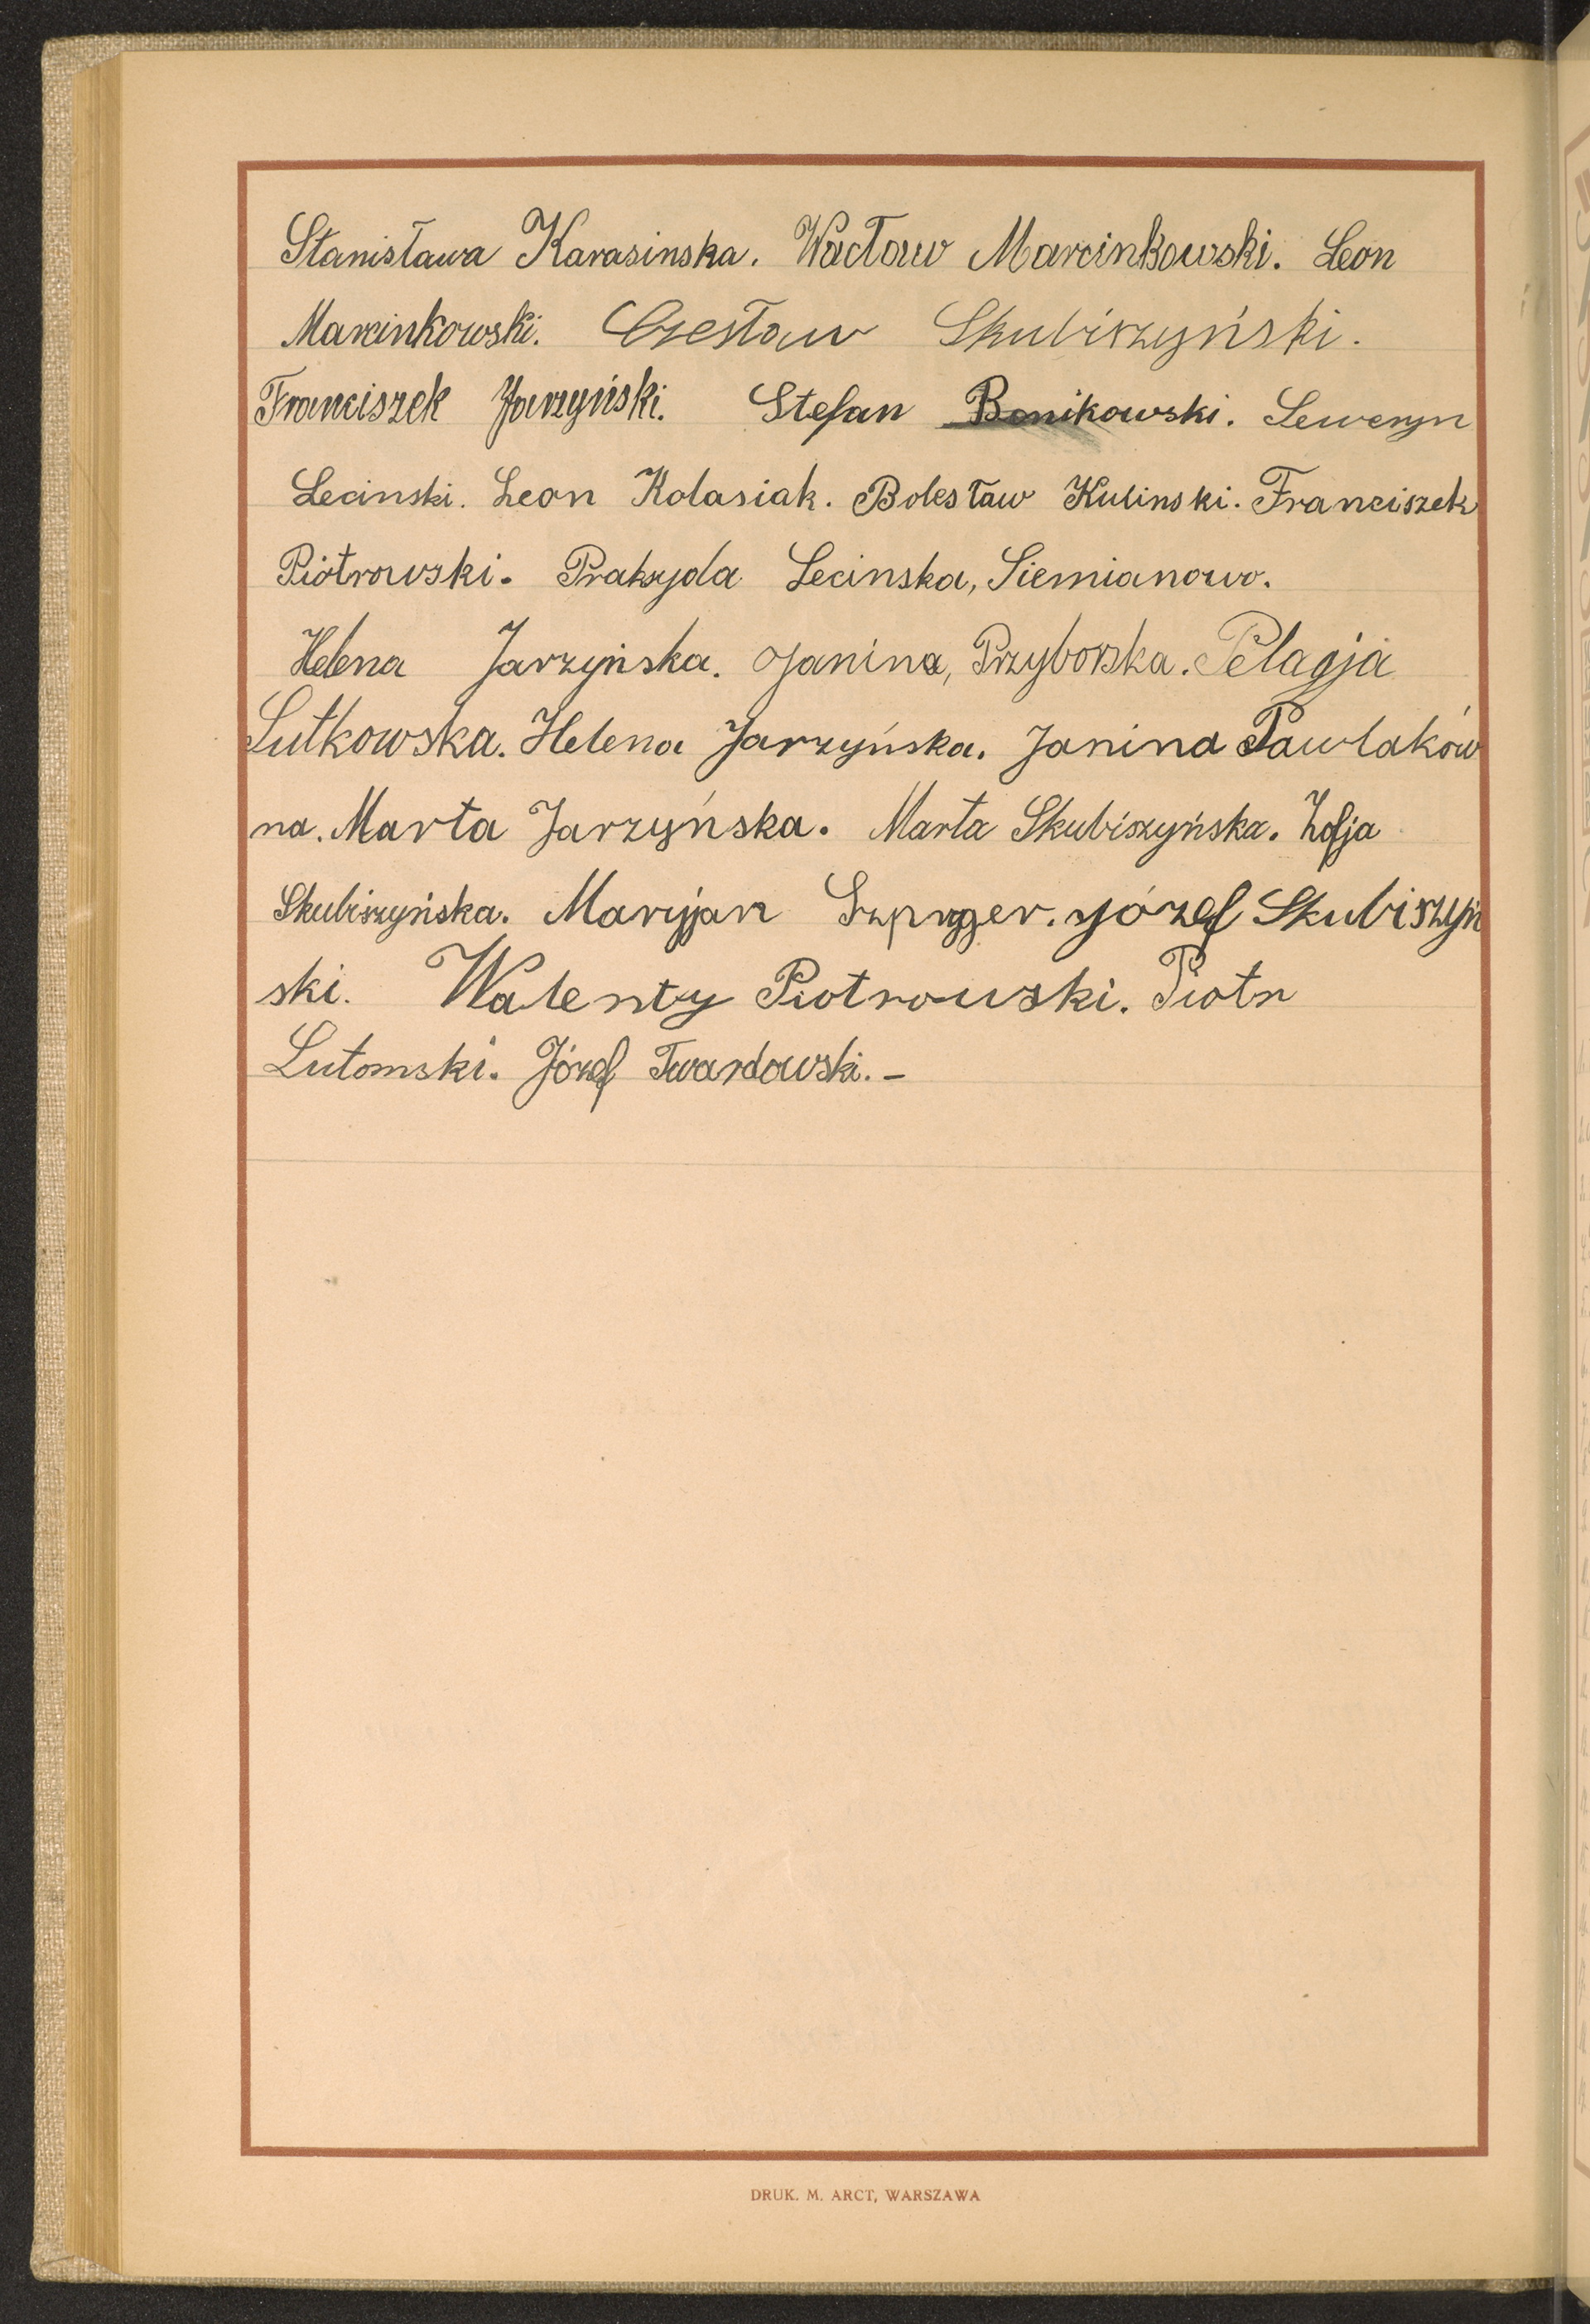 Stanisława Karasinska. Wacław Marcinkowski. Leon
Marcinkowski. Czesław Skubiszyński.
Franciszek Jarzyński. Stefan Bonikowski. Seweryn
Lecinski. Leon Kolasiak. Bolesław Kulinski. Franciszek
Piotrowski. Praksyda Lecinska, Siemianowo.
Helena Jarzyńska. Janina, Przyborska. Pelagja
Lutkowska. Helena Jarzyńska. Janina Pawlaków
na. Marta Jarzyńska. Marta Skubiszyńska. Zofja
Skubiszyńska. Maryjan Szpryger. Józef Skubiszyń
ski. Walenty Piotrowski. Piotr
Lutomski. Józef Twardowski. –
DRUK. M. ARCT, WARSZAWA